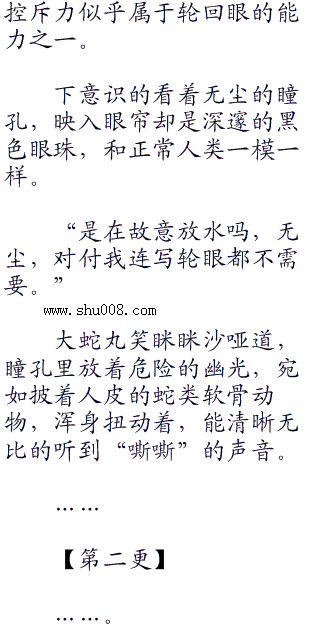 控斥力似乎属于轮回眼的能
力之一。
下意识的看着无尘的瞳
孔，映入眼帘却是深邃的黑
色眼珠，和正常人类一模一
样。
“是在故意放水吗，无
尘，对付我连写轮眼都不需
要。”
www.shu008.com
大蛇丸笑眯眯沙哑道，
瞳孔里放着危险的幽光，宛
如披着人皮的蛇类软骨动
物，浑身扭动着，能清晰无
比的听到“嘶嘶”的声音。
……
【第二更】
……。